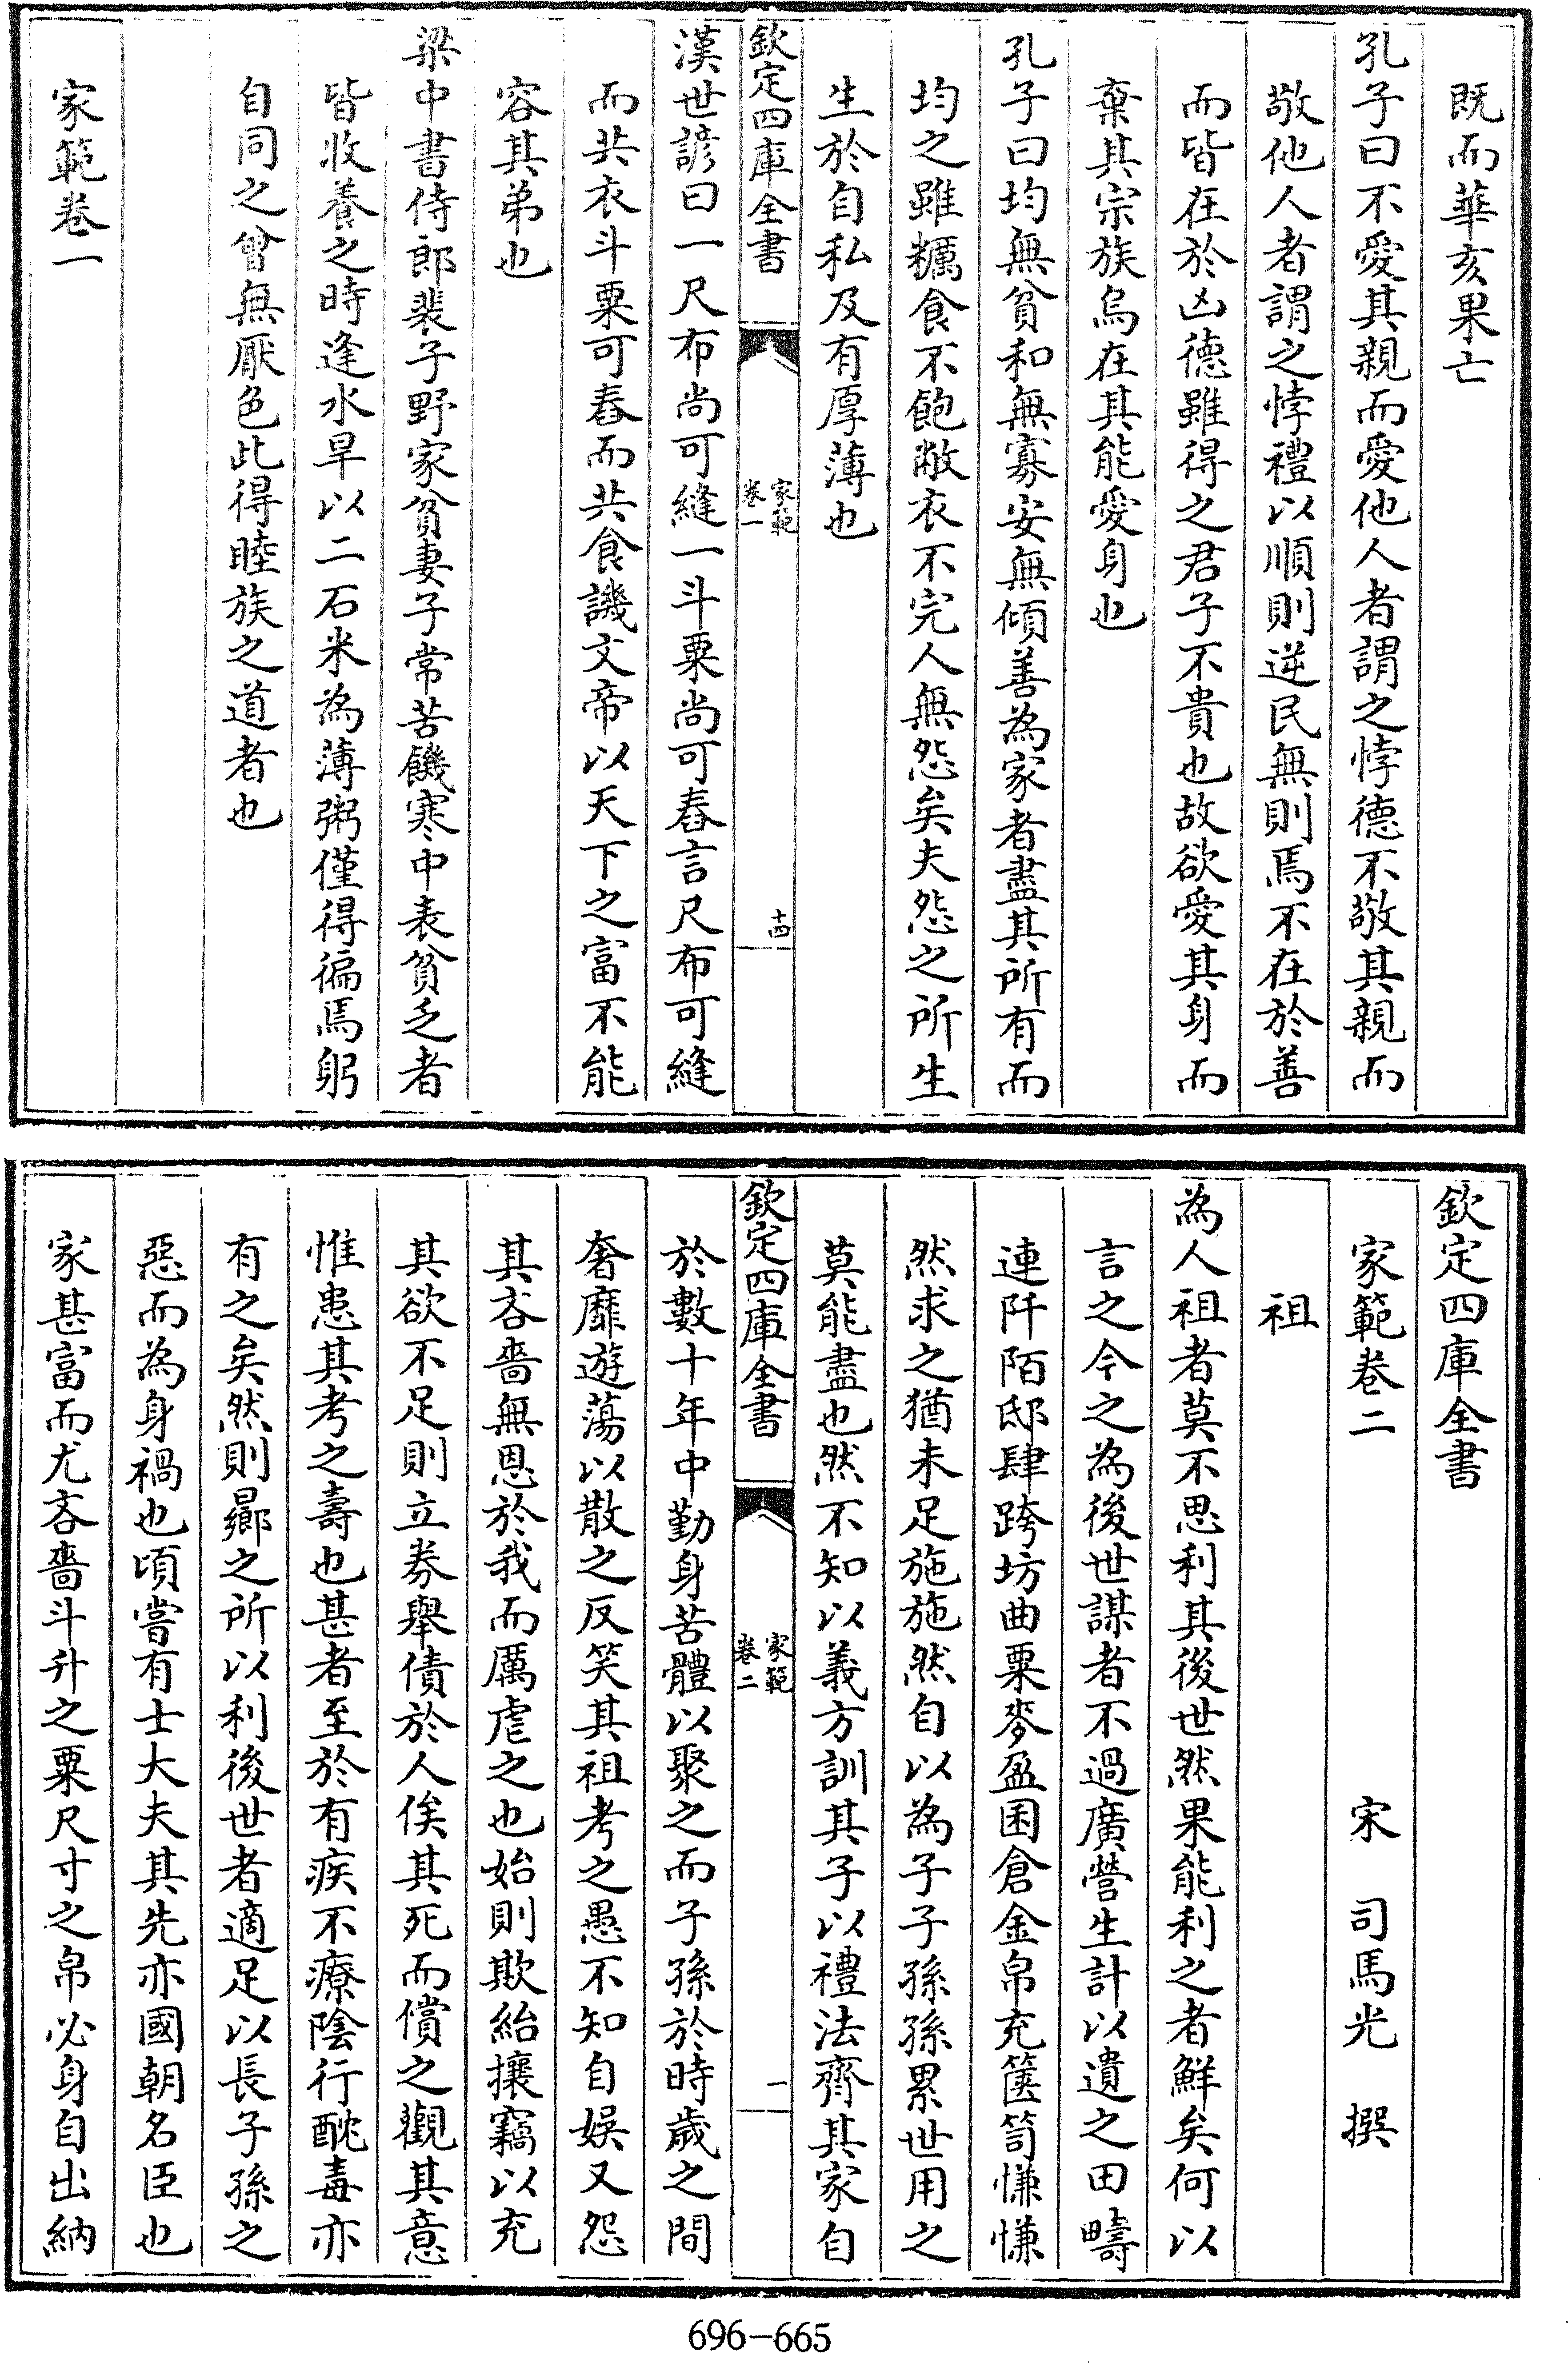 既而華亥果亡
孔子曰不愛其親而愛他人者謂之悖德不敬其親而
敬他人者謂之悖禮以順則逆民無則焉不在於善
而皆在於凶德雖得之君子不貴也故欲愛其身而
棄其宗族烏在其能愛身也
孔子曰均無貧和無寡安無傾善為家者盡其所有而
均之雖糲食不飽敝衣不完人無怨矣夫怨之所生
生於自私及有厚薄也
欽定四庫全書
家範
卷一
十四
漢世諺曰一尺布尚可縫一斗粟尚可舂言尺布可縫
而共衣斗粟可舂而共食譏文帝以天下之富不能
容其弟也
梁中書侍郎裴子野家貧妻子常苦饑寒中表貧乏者
皆收養之時逢水旱以二石米為薄粥僅得徧焉躬
自同之曾無厭色此得睦族之道者也
家範卷一
欽定四庫全書
家範卷二
宋 司馬光 撰
祖
為人祖者莫不思利其後世然果能利之者鮮矣何以
言之今之為後世謀者不過廣營生計以遺之田疇
連阡陌邸肆跨坊曲粟麥盈囷倉金帛充篋笥慊慊
然求之猶未足施施然自以為子子孫孫累世用之
莫能盡也然不知以義方訓其子以禮法齊其家自
欽定四庫全書
家範
卷二
一
於數十年中勤身苦體以聚之而子孫於時歲之間
奢靡遊蕩以散之反笑其祖考之愚不知自娛又怨
其吝嗇無恩於我而厲虐之也始則欺紿攘竊以充
其欲不足則立券舉債於人俟其死而償之觀其意
惟患其考之壽也甚者至於有疾不療陰行酖毒亦
有之矣然則曏之所以利後世者適足以長子孫之
惡而為身禍也頃嘗有士大夫其先亦國朝名臣也
家甚富而尤吝嗇斗升之粟尺寸之帛必身自出納
696-665